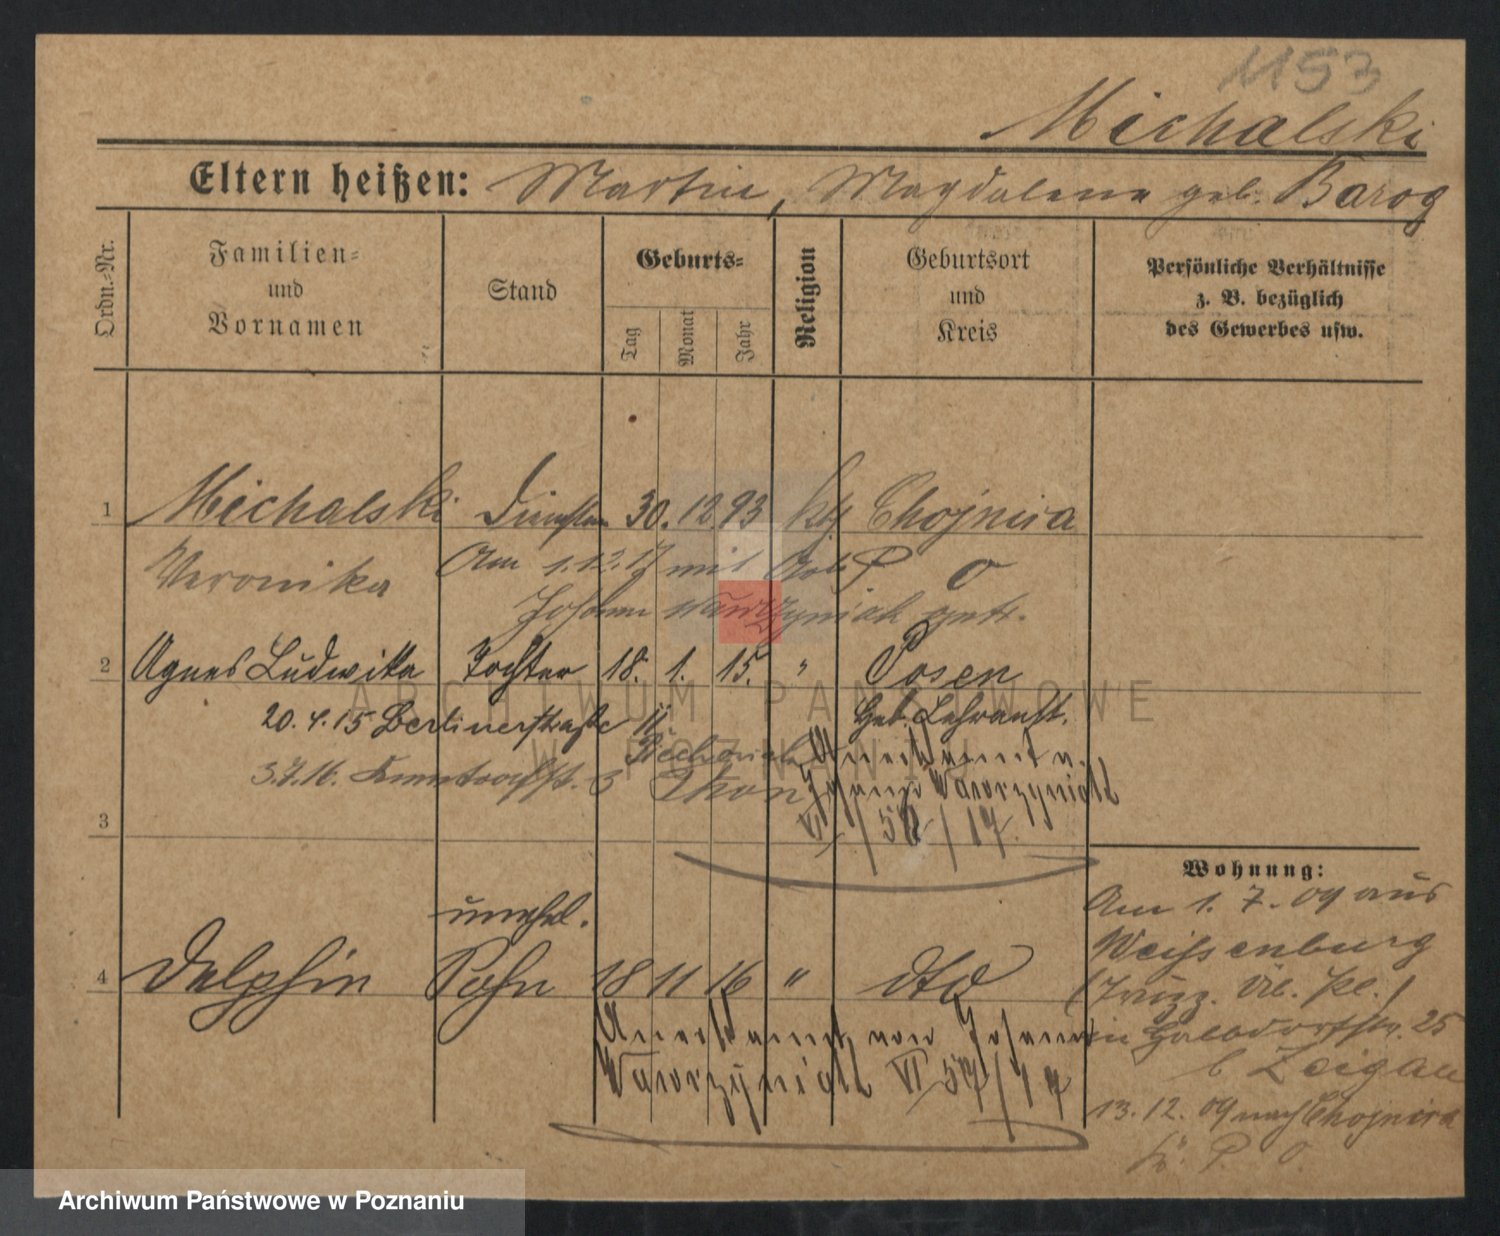 1153
Michalski
Eltern heißen: Martin, Magdalena geb. Barog
Ordn.-Nr.
Familien-
und
Vornamen
Stand
Geburts-
Tag
Monat
Jahr
Religion
Geburtsort
und
Kreis
Persönliche Verhältnisse
z. B. bezüglich
des Gewerbes usw.
1 Michalski 30. 12. 93 kth Chojnica
Veronika Am 1.12.17 mit Arb. P. O
Johann Wawrzyniak getr.
2 Agnes Ludwika Tochter 18. 1. 15. " Posen
20.4.15 Berlinerstraße 11 Geb. Lehranst.
Anerkannt v.
3.7.16. 3 Johann Wawrzyniak
3 VI /58/17.
Wohnung:
unehl. Am 1. 7. 09 aus
Weissenburg
4 Delphin Sohn 18 11 16 " dto
Anerkannt von Johann
Wawrzyniak VI 57/17
in 25
b Zeigau
13. 12. 09 nach Chojnica
Kr. P. O.
ARCHIWUM PAŃSTWOWE
W POZNANIU
Archiwum Państwowe w Poznaniu